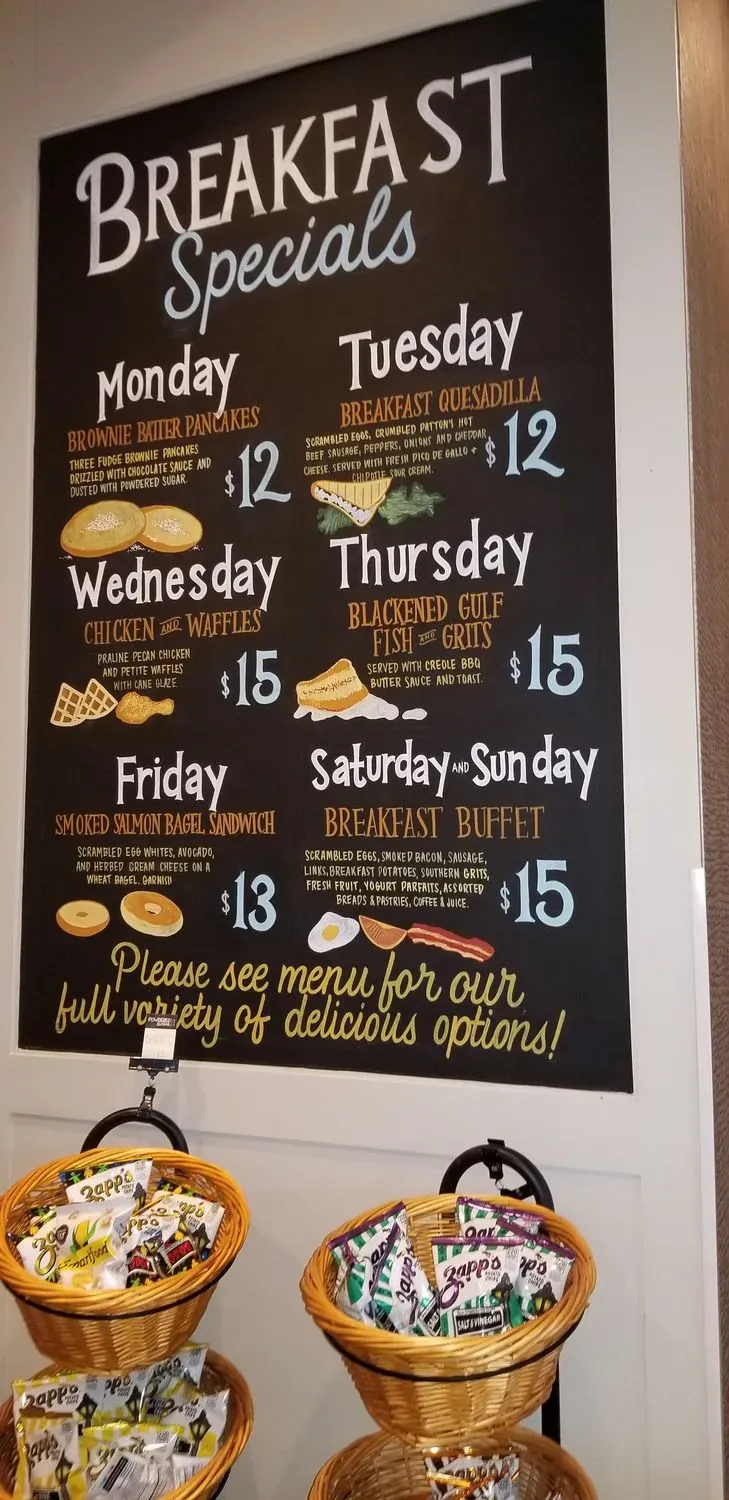 BREAKFAST
Specials
Monday
BROWNIE BATTER PANCAKES
THREE FUDGE BROWNIE PANCAKES
DRIZZLED WITH CHOCOLATE SAUCE AND
DUSTED WITH POWDERED SUGAR.
$12
Tuesday
BREAKFAST QUESADILLA
SCRAMBLED EGGS, CRUMBLED PATTON'S HOT
BEEF SAUSAGE, PEPPERS, ONIONS AND CHEDDAR
CHEESE. SERVED WITH FRESH PICO DE GALLO +
CHIPOTLE SOUR CREAM.
$12
Wednesday
CHICKEN AND WAFFLES
PRALINE PECAN CHICKEN
AND PETITE WAFFLES
WITH CANE GLAZE.
$15
Thursday
BLACKENED GULF
FISH AND GRITS
SERVED WITH CREOLE BBQ
BUTTER SAUCE AND TOAST.
$15
Friday
SMOKED SALMON BAGEL SANDWICH
SCRAMBLED EGG WHITES, AVOCADO,
AND HERBED CREAM CHEESE ON A
WHEAT BAGEL. GARNISH
$13
Saturday AND Sunday
BREAKFAST BUFFET
SCRAMBLED EGGS, SMOKED BACON, SAUSAGE,
LINKS, BREAKFAST POTATOES, SOUTHERN GRITS,
FRESH FRUIT, YOGURT PARFAITS, ASSORTED
BREADS & PASTRIES, COFFEE & JUICE.
$15
Please see menu for our
full variety of delicious options!
Zapp's
Zapp's
Smartfood
Zapp's
Zapp's
Zapp's
SALT & VINEGAR
Zapp's
Zapp's
Zapp's